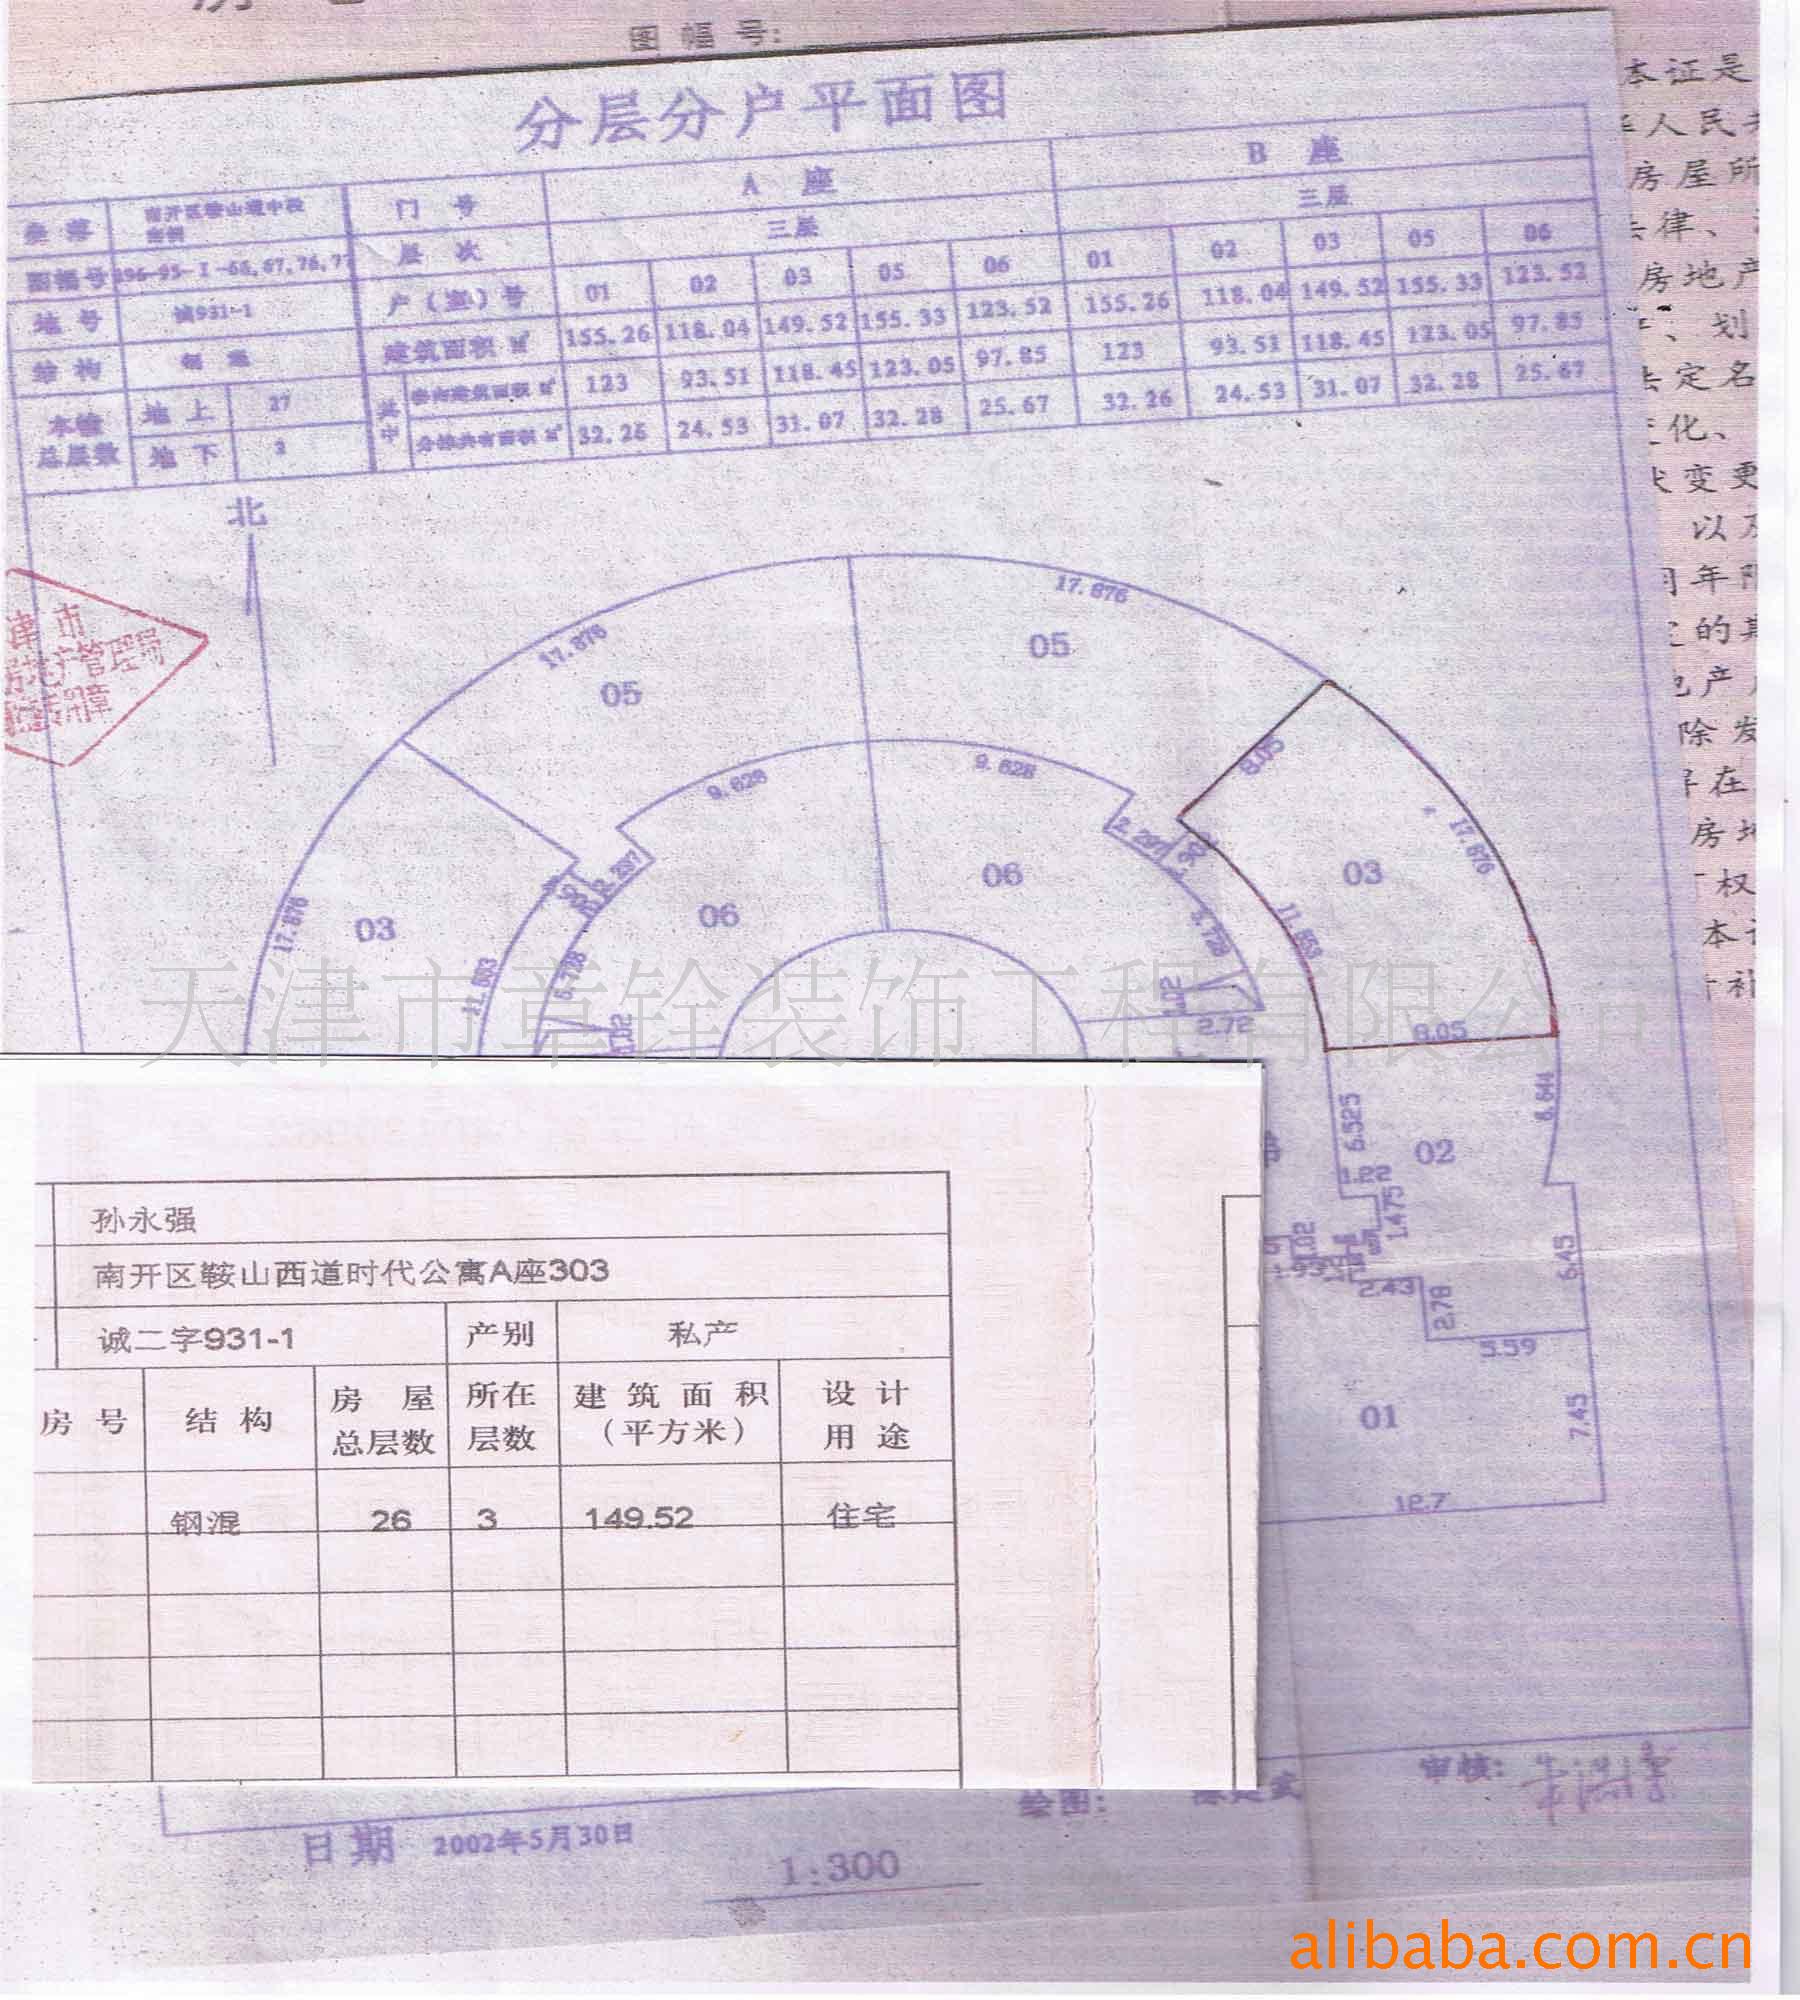 图 幅 号:
分层分户平面图
坐 落
南开区鞍山道中段
门 号
A 座
B 座
图幅号
296-95-I-66,67,76,77
层 次
三层
三层
地 号
诚931-1
户(室)号
01 02 03 05 06 01 02 03 05 06
结 构
钢 混
建筑面积 ㎡
155.26 118.04 149.52 155.33 123.52 155.26 118.04 149.52 155.33 123.52
本幢
总层数
地 上
27
地 下
其
中
套内建筑面积 ㎡
123 93.51 118.45 123.05 97.85 123 93.51 118.45 123.05 97.85
分摊共有面积 ㎡
32.26 24.53 31.07 32.28 25.67 32.26 24.53 31.07 32.28 25.67
北
津 市
房地产管理局
专用章
17.876
17.876
05
05
9.628
9.628
8.05
2.297
2.297
03
06
06
03
17.876
17.876
11.653
11.653
5.738
5.728
1.02
1.02
2.72
8.05
天津市章铨装饰工程有限公司
6.525
02
8.644
1.475
1.02
2.43
2.78
6.45
5.59
01
7.45
12.7
孙永强
南开区鞍山西道时代公寓A座303
诚二字931-1
产别
私产
房 号
结 构
房 屋
总层数
所在
层数
建 筑 面 积
(平方米)
设 计
用 途
钢混
26
3
149.52
住宅
绘图:
审核:
日 期 2002年5月30日
1:300
本证是
人民
房屋所
律、
房地产
、划
定名
化、
变更
以及
年限
的其
产
除发
在
房地
权
本证
补
alibaba.com.cn